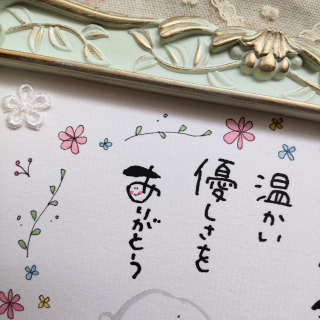 温かい
優しさを
ありがとう